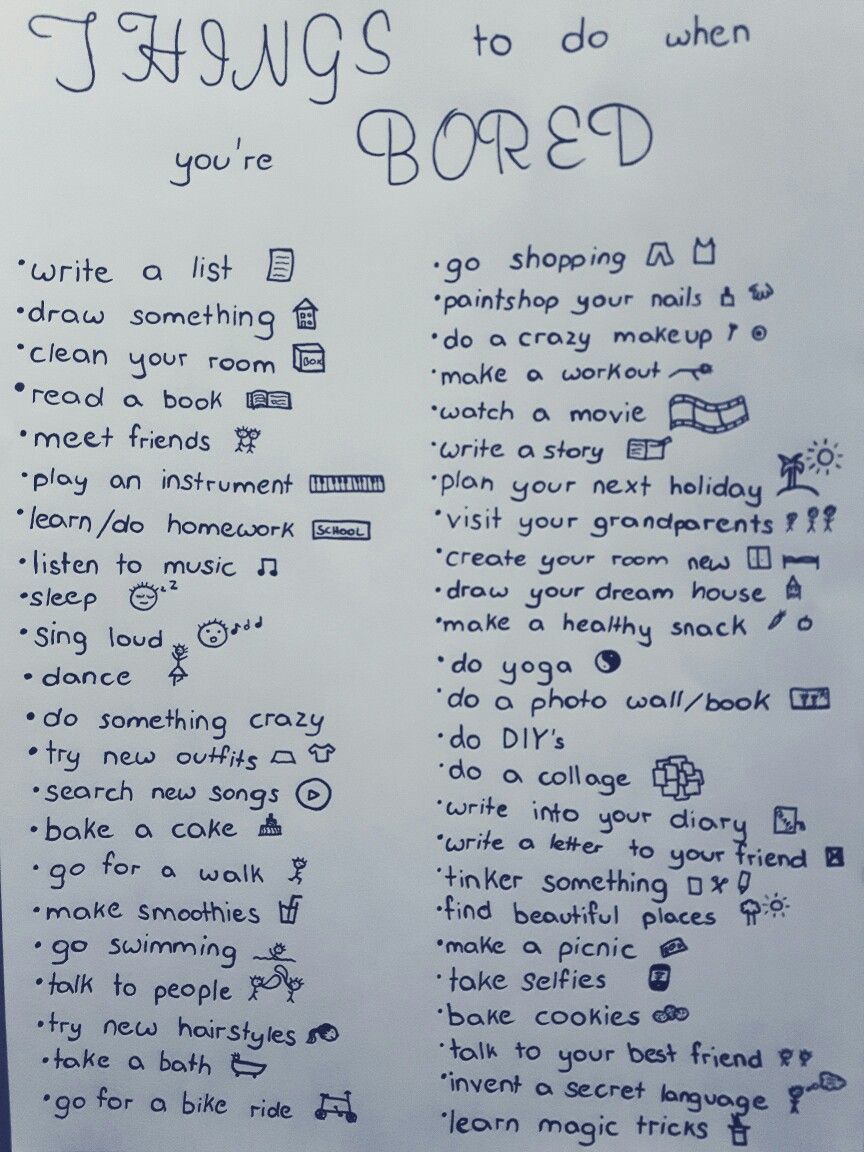 THINGS to do when
you're BORED
•write a list
•draw something
•clean your room
BOX
•read a book
•meet friends
•play an instrument
•learn/do homework
SCHOOL
•listen to music
•sleep
zz
•sing loud
•dance
•do something crazy
•try new outfits
•search new songs
•bake a cake
•go for a walk
•make smoothies
•go swimming
•talk to people
•try new hairstyles
•take a bath
•go for a bike ride
•go shopping
•paintshop your nails
•do a crazy makeup
•make a workout
•watch a movie
•write a story
•plan your next holiday
•visit your grandparents
•create your room new
•draw your dream house
•make a healthy snack
•do yoga
•do a photo wall/book
•do DIY's
•do a collage
•write into your diary
•write a letter to your friend
•tinker something
•find beautiful places
•make a picnic
•take selfies
•bake cookies
•talk to your best friend
•invent a secret language
•learn magic tricks